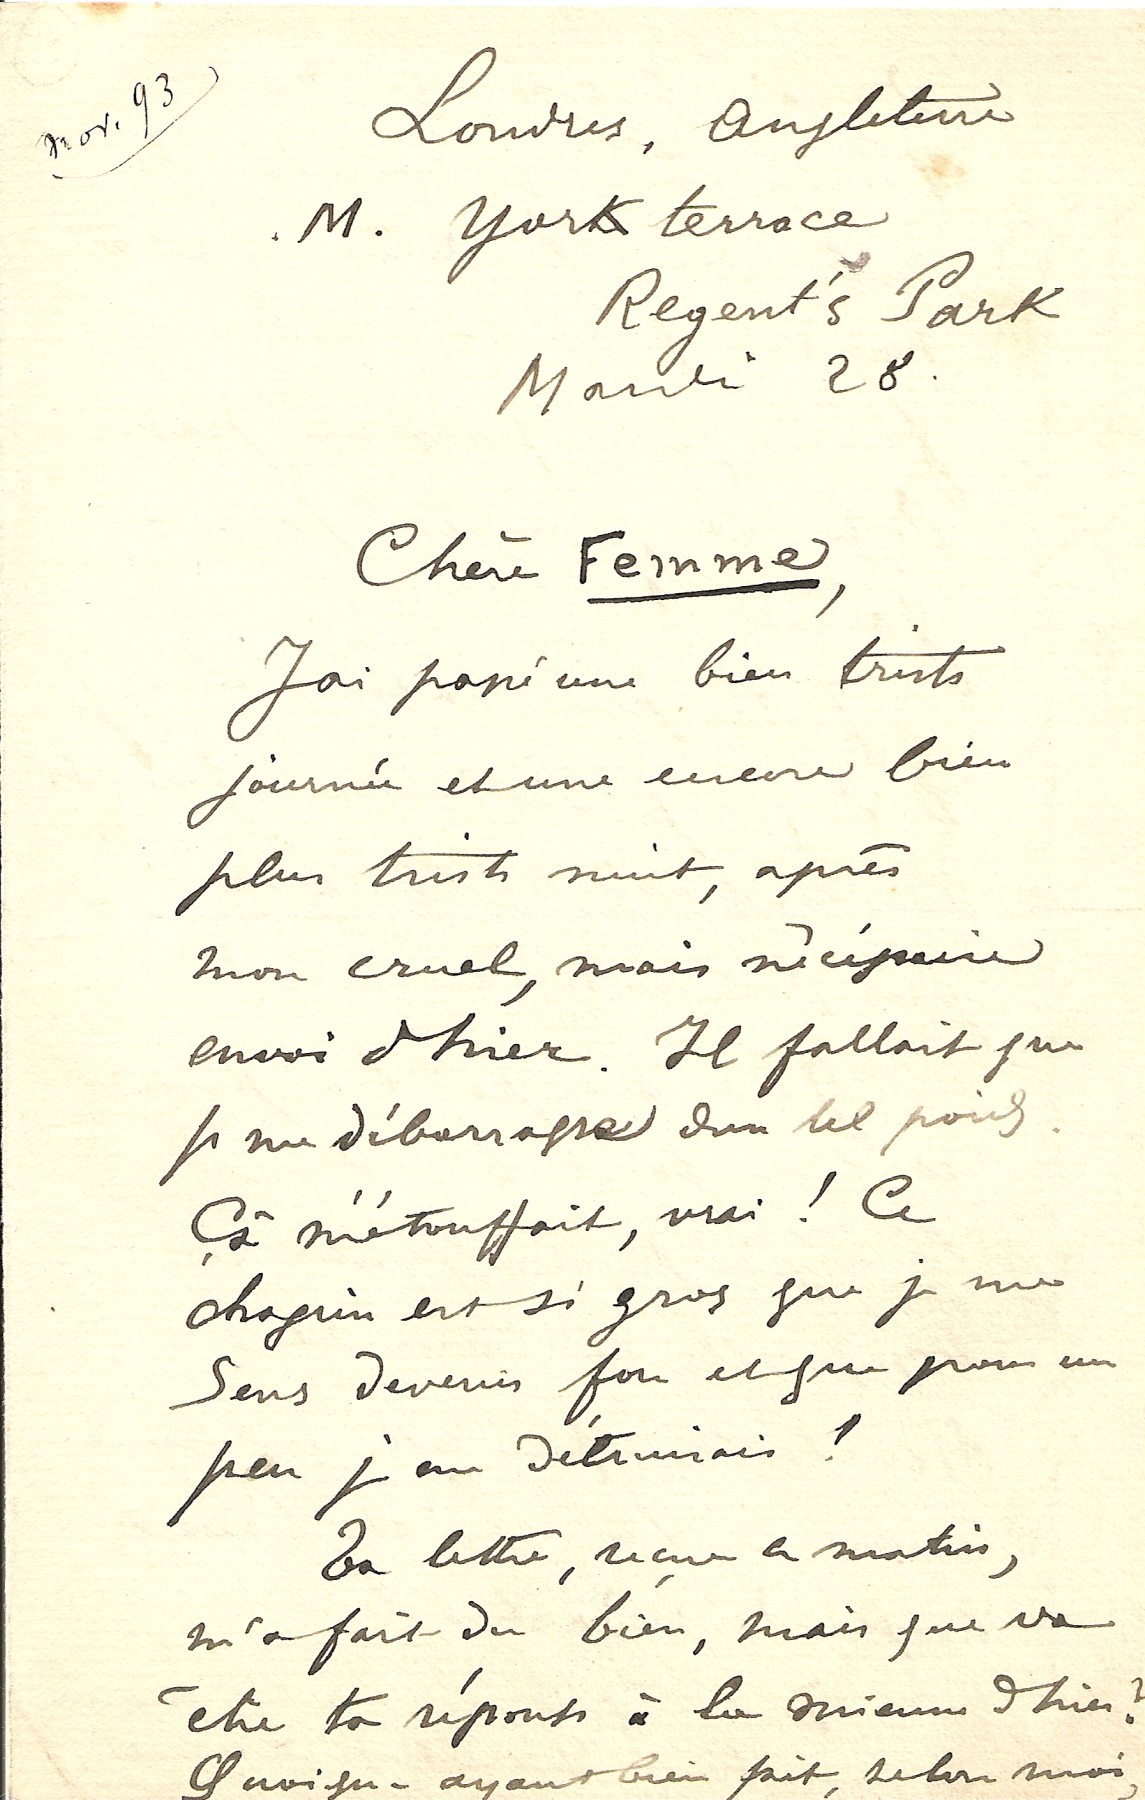 nov. 93
Londres, Angleterre
. M. York terrace
Regent's Park
Mardi 28.
Chère Femme,
J'ai passé une bien triste
journée et une encore bien
plus triste nuit, après
mon cruel, mais nécessaire
envoi d'hier. Il fallait que
je me débarrasse d'un tel poids.
Çà m'étouffait, vrai ! Ce
chagrin est si gros que je me
sens devenir fou et que pour un
peu j'en détruirais !
Ta lettre, reçue ce matin,
m'a fait du bien, mais que va
être ta réponse à la mienne d'hier ?
Quoique ayant bien fait, selon moi,